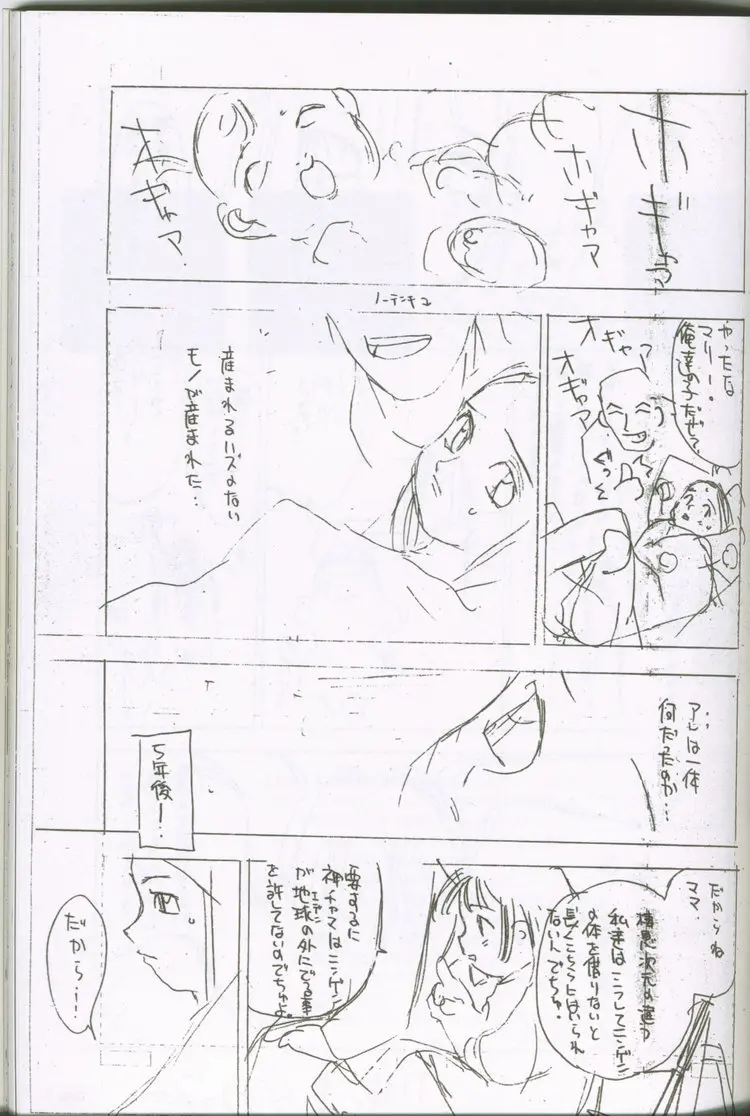 ホギャア
ホギャア
オギャア
やったな
マリー。
俺達の子だぜて
オギャア
オギャア
ぐっ
ノーテンキユ
産まれるハズのない
モノが産まれた…
アレは一体
何だったのか…
5年後ー…
だからね
ママ、
次元の違う
私達はこうしてニンゲン
の体を借りないと
長くこちらにはいられ
ないんでちゅ。
要するに
神チャマはニンゲン
が地球の外にでる事
エデン
を許してないのでちゅよ。
だから…!